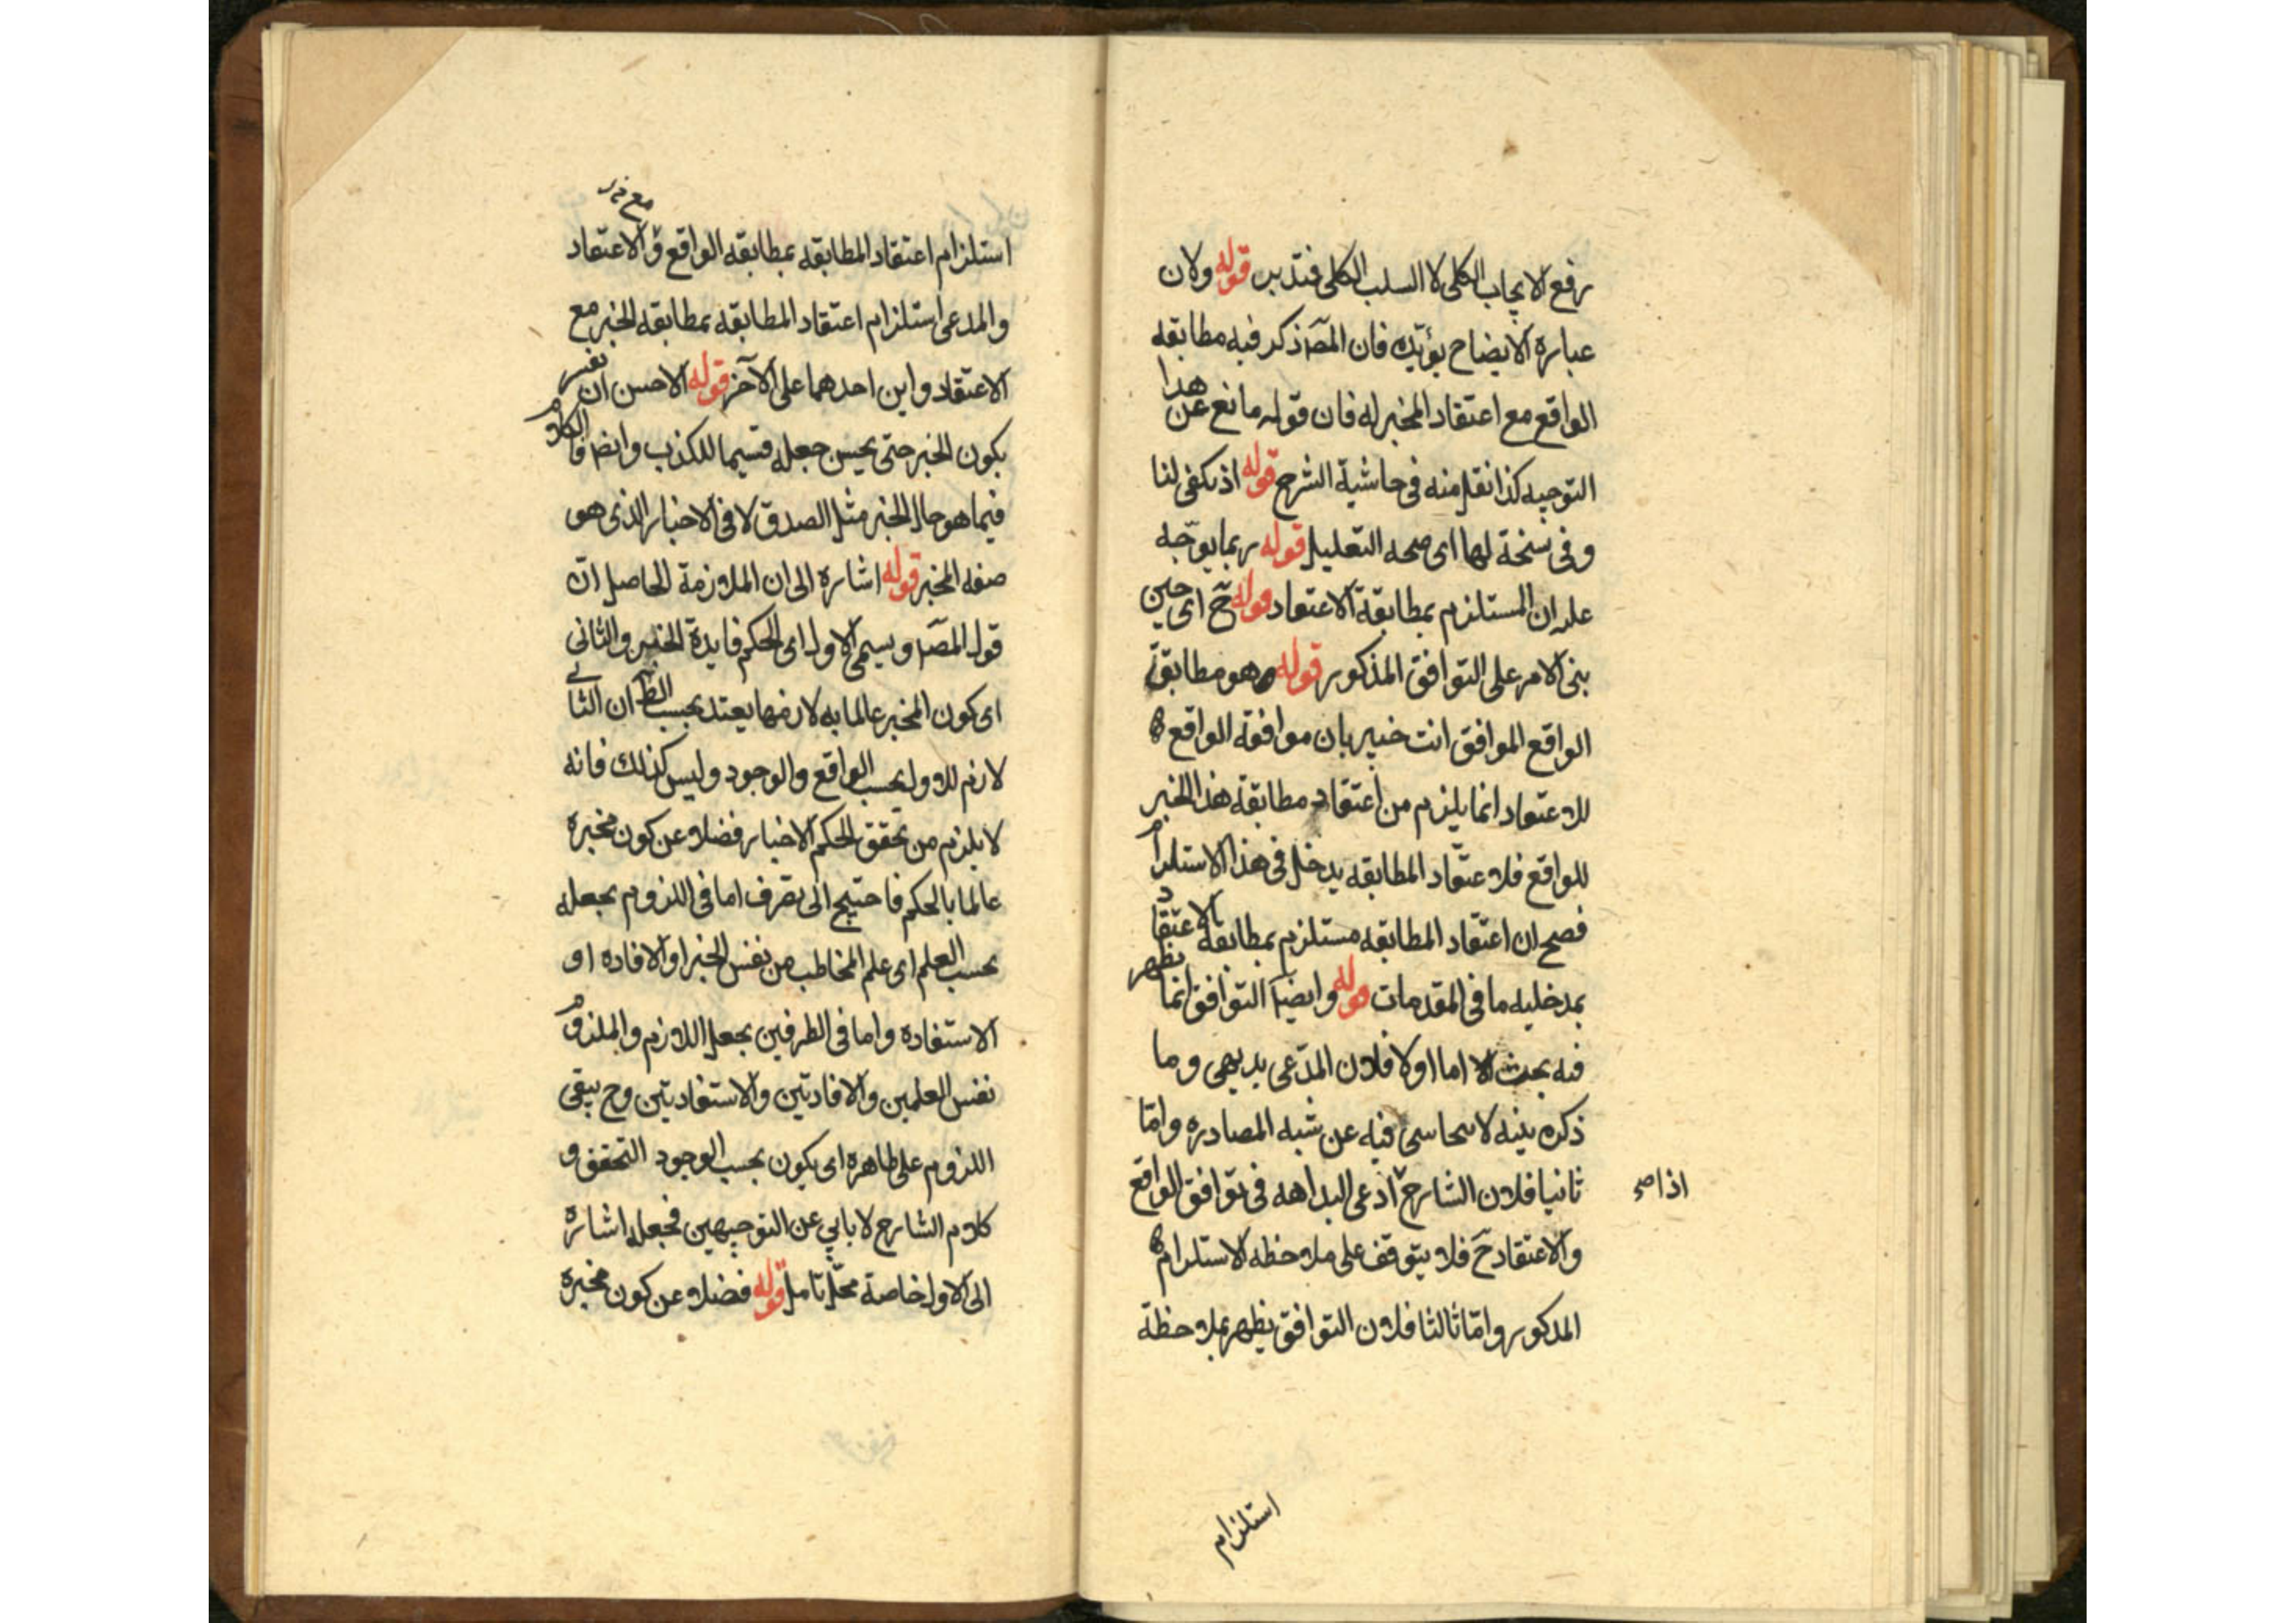 رفع الايجاب الكلى لا السلب الكلى فتدبر قوله ولان
عبارة الايضاح يؤيده فان المص ذكر فيه مطابقة
الواقع مع اعتقاد المخبر له فان قوله مانع عن هذا
التوجيه كذا نقل منه فى حاشية الشرح قوله اذ يكفى لنا
وفى نسخة لها اى صحه التعليل قوله ربما يوجه
على ان المستلزم بمطابقة الاعتقاد قوله ح اى حين
بنى الامر على التوافق المذكور قوله وهو مطابقة
الواقع الموافق انت خبير بان موافقة الواقع
للاعتقاد انما يلزم من اعتقاد مطابقة هذا الخبر
للواقع فلاعتقاد المطابقه يدخل فى هذا الاستلزام
فصح ان اعتقاد المطابقه مستلزم بمطابقة الاعتقاد
بمدخليه ما فى المقدمات قوله وايضا التوافق انما يظهر
فيه بحث اما اولا فلان المدعى بديهى وما
ذكره بينه لا يتحاسى فيه عن شبه المصادره واما
ثانيا فلان الشارح ادعى البداهه فى توافق الواقع
اذا صح
والاعتقاد ح فلا يتوقف على ملاحظه الاستلزام
المذكور واما ثالثا فلان التوافق يظهر بملاحظة
استلزام
استلزام اعتقاد المطابقه بمطابقه الواقع والاعتقاد
والمدعى استلزام اعتقاد المطابقه بمطابقه الخبر مع
الاعتقاد واين احدهما على الآخر قوله الاحسن ان نفسر
يكون الخبر حتى يحسن جعله قسيما للكذب وايضا فالكلام
فيما هو حال الخبر مثل الصدق لا فى الاخبار الذى هو
صفه المخبر قوله اشاره الى ان الملازمة الحاصل ان
قول المص ويسمى الاول اى الحكم فايدة الخبر والثانى
اى كون المخبر عالما به لازمها يعتد بحسب الظ ان الثانى
لازم للاول بحسب الواقع والوجود وليس كذلك فانه
لا يلزم من تحقق الحكم الاخبار فضلا عن كون مخبره
عالما بالحكم فاحتيج الى تصرف اما فى اللزوم بجعله
بحسب العلم اى علم المخاطب من نفس الخبر او الافاده او
الاستفاده واما فى الطرفين بجعل اللازم والملزوم
نفس العلمين والافادتين والاستفادتين وح يبقى
اللزوم على ظاهره اى يكون بحسب الوجود التحقق و
كلام الشارح لا يابى عن التوجيهين فجعله اشارة
الى الاول خاصة محل تامل قوله فضلا عن كون مخبره